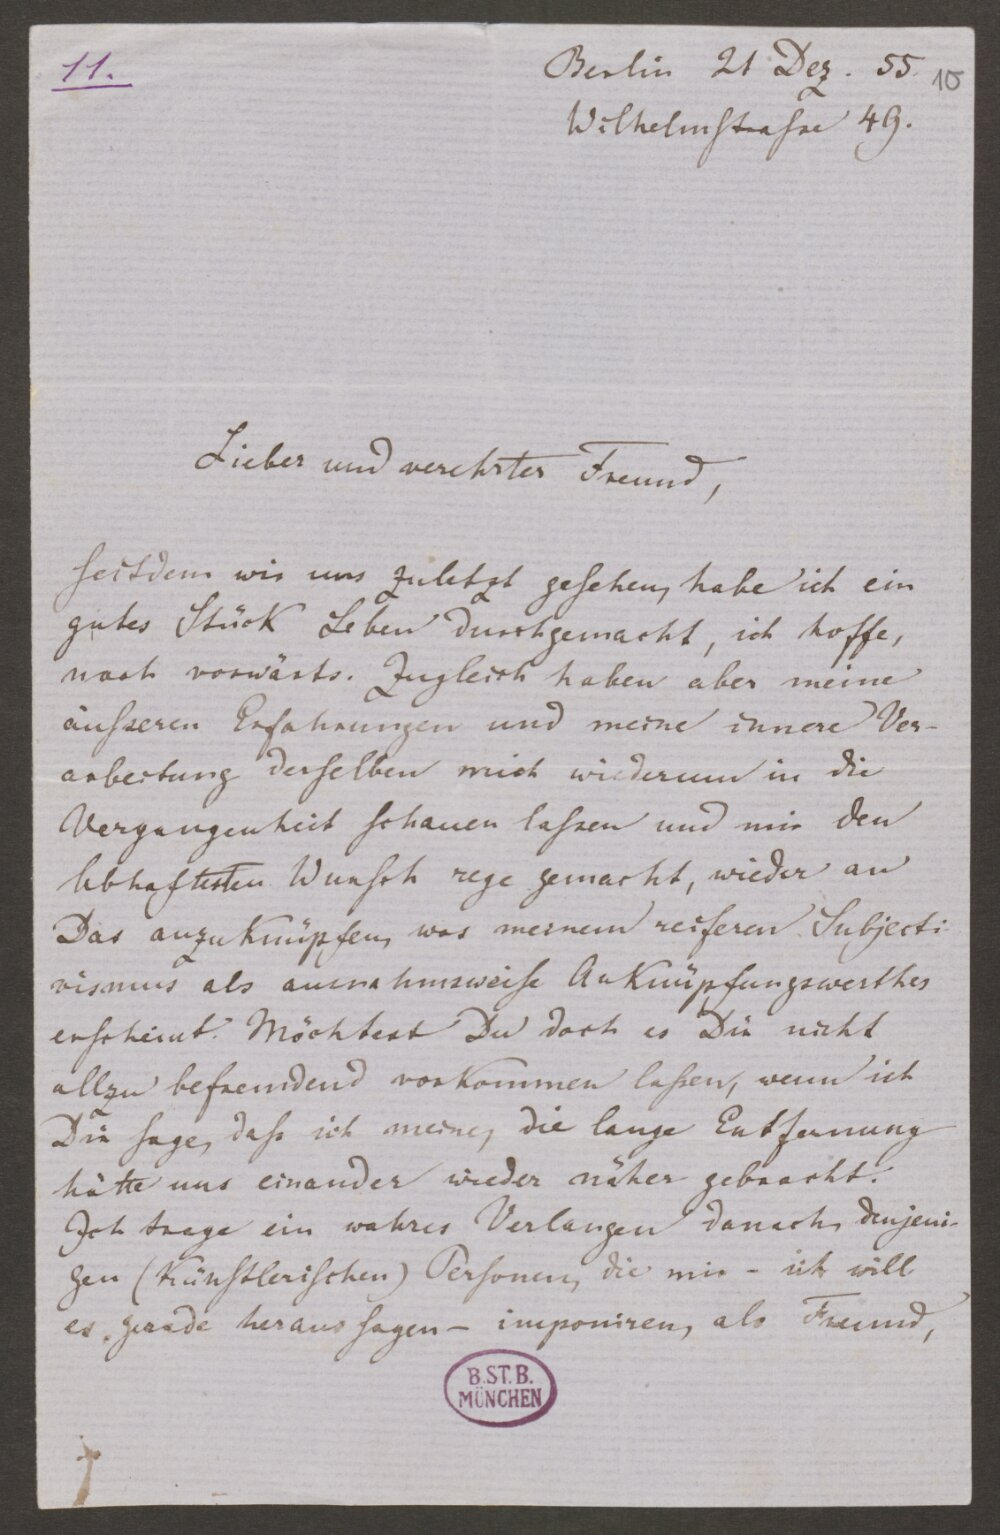 11.
Berlin 21 Dez. 55.
10
Wilhelmstrasse 49.
Lieber und verehrter Freund,
seitdem wir uns zuletzt gesehen, habe ich ein
gutes Stück Leben durchgemacht, ich hoffe,
nach vorwärts. Zugleich haben aber meine
äusseren Erfahrungen und meine innere Ver-
arbeitung derselben mich wiederum in die
Vergangenheit schauen lassen und mir den
lebhaftesten Wunsch rege gemacht, wieder an
Das anzuknüpfen, was meinem reiferen Subjecti-
vismus als ausnahmsweise Anknüpfungswerthes
erscheint. Möchtest Du doch es Dir nicht
allzu befremdend vorkommen lassen, wenn ich
Dir sage, dass ich meine, die lange Entfernung
hätte uns einander wieder näher gebracht.
Ich trage ein wahres Verlangen danach, denjeni-
gen (künstlerischen) Personen, die mir – ich will
es gerade heraus sagen – imponiren, als Freund,
B.ST.B.
MÜNCHEN